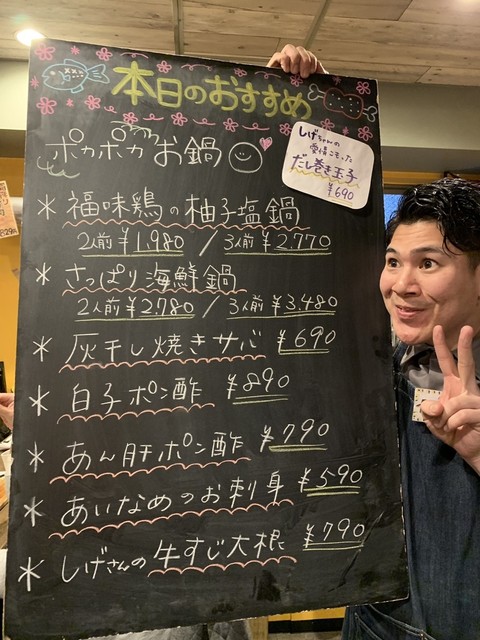 本日のおすすめ
ポカポカお鍋
しげちゃんの
愛情こもった
だし巻き玉子
¥690
* 福味鶏の柚子塩鍋
2人前 ¥1,980 / 3人前 ¥2,770
* さっぱり海鮮鍋
2人前 ¥2,780 / 3人前 ¥3,480
* 灰干し焼きサバ ¥690
* 白子ポン酢 ¥890
* あん肝ポン酢 ¥790
* あいなめのお刺身 ¥590
* しげさんの牛すじ大根 ¥790